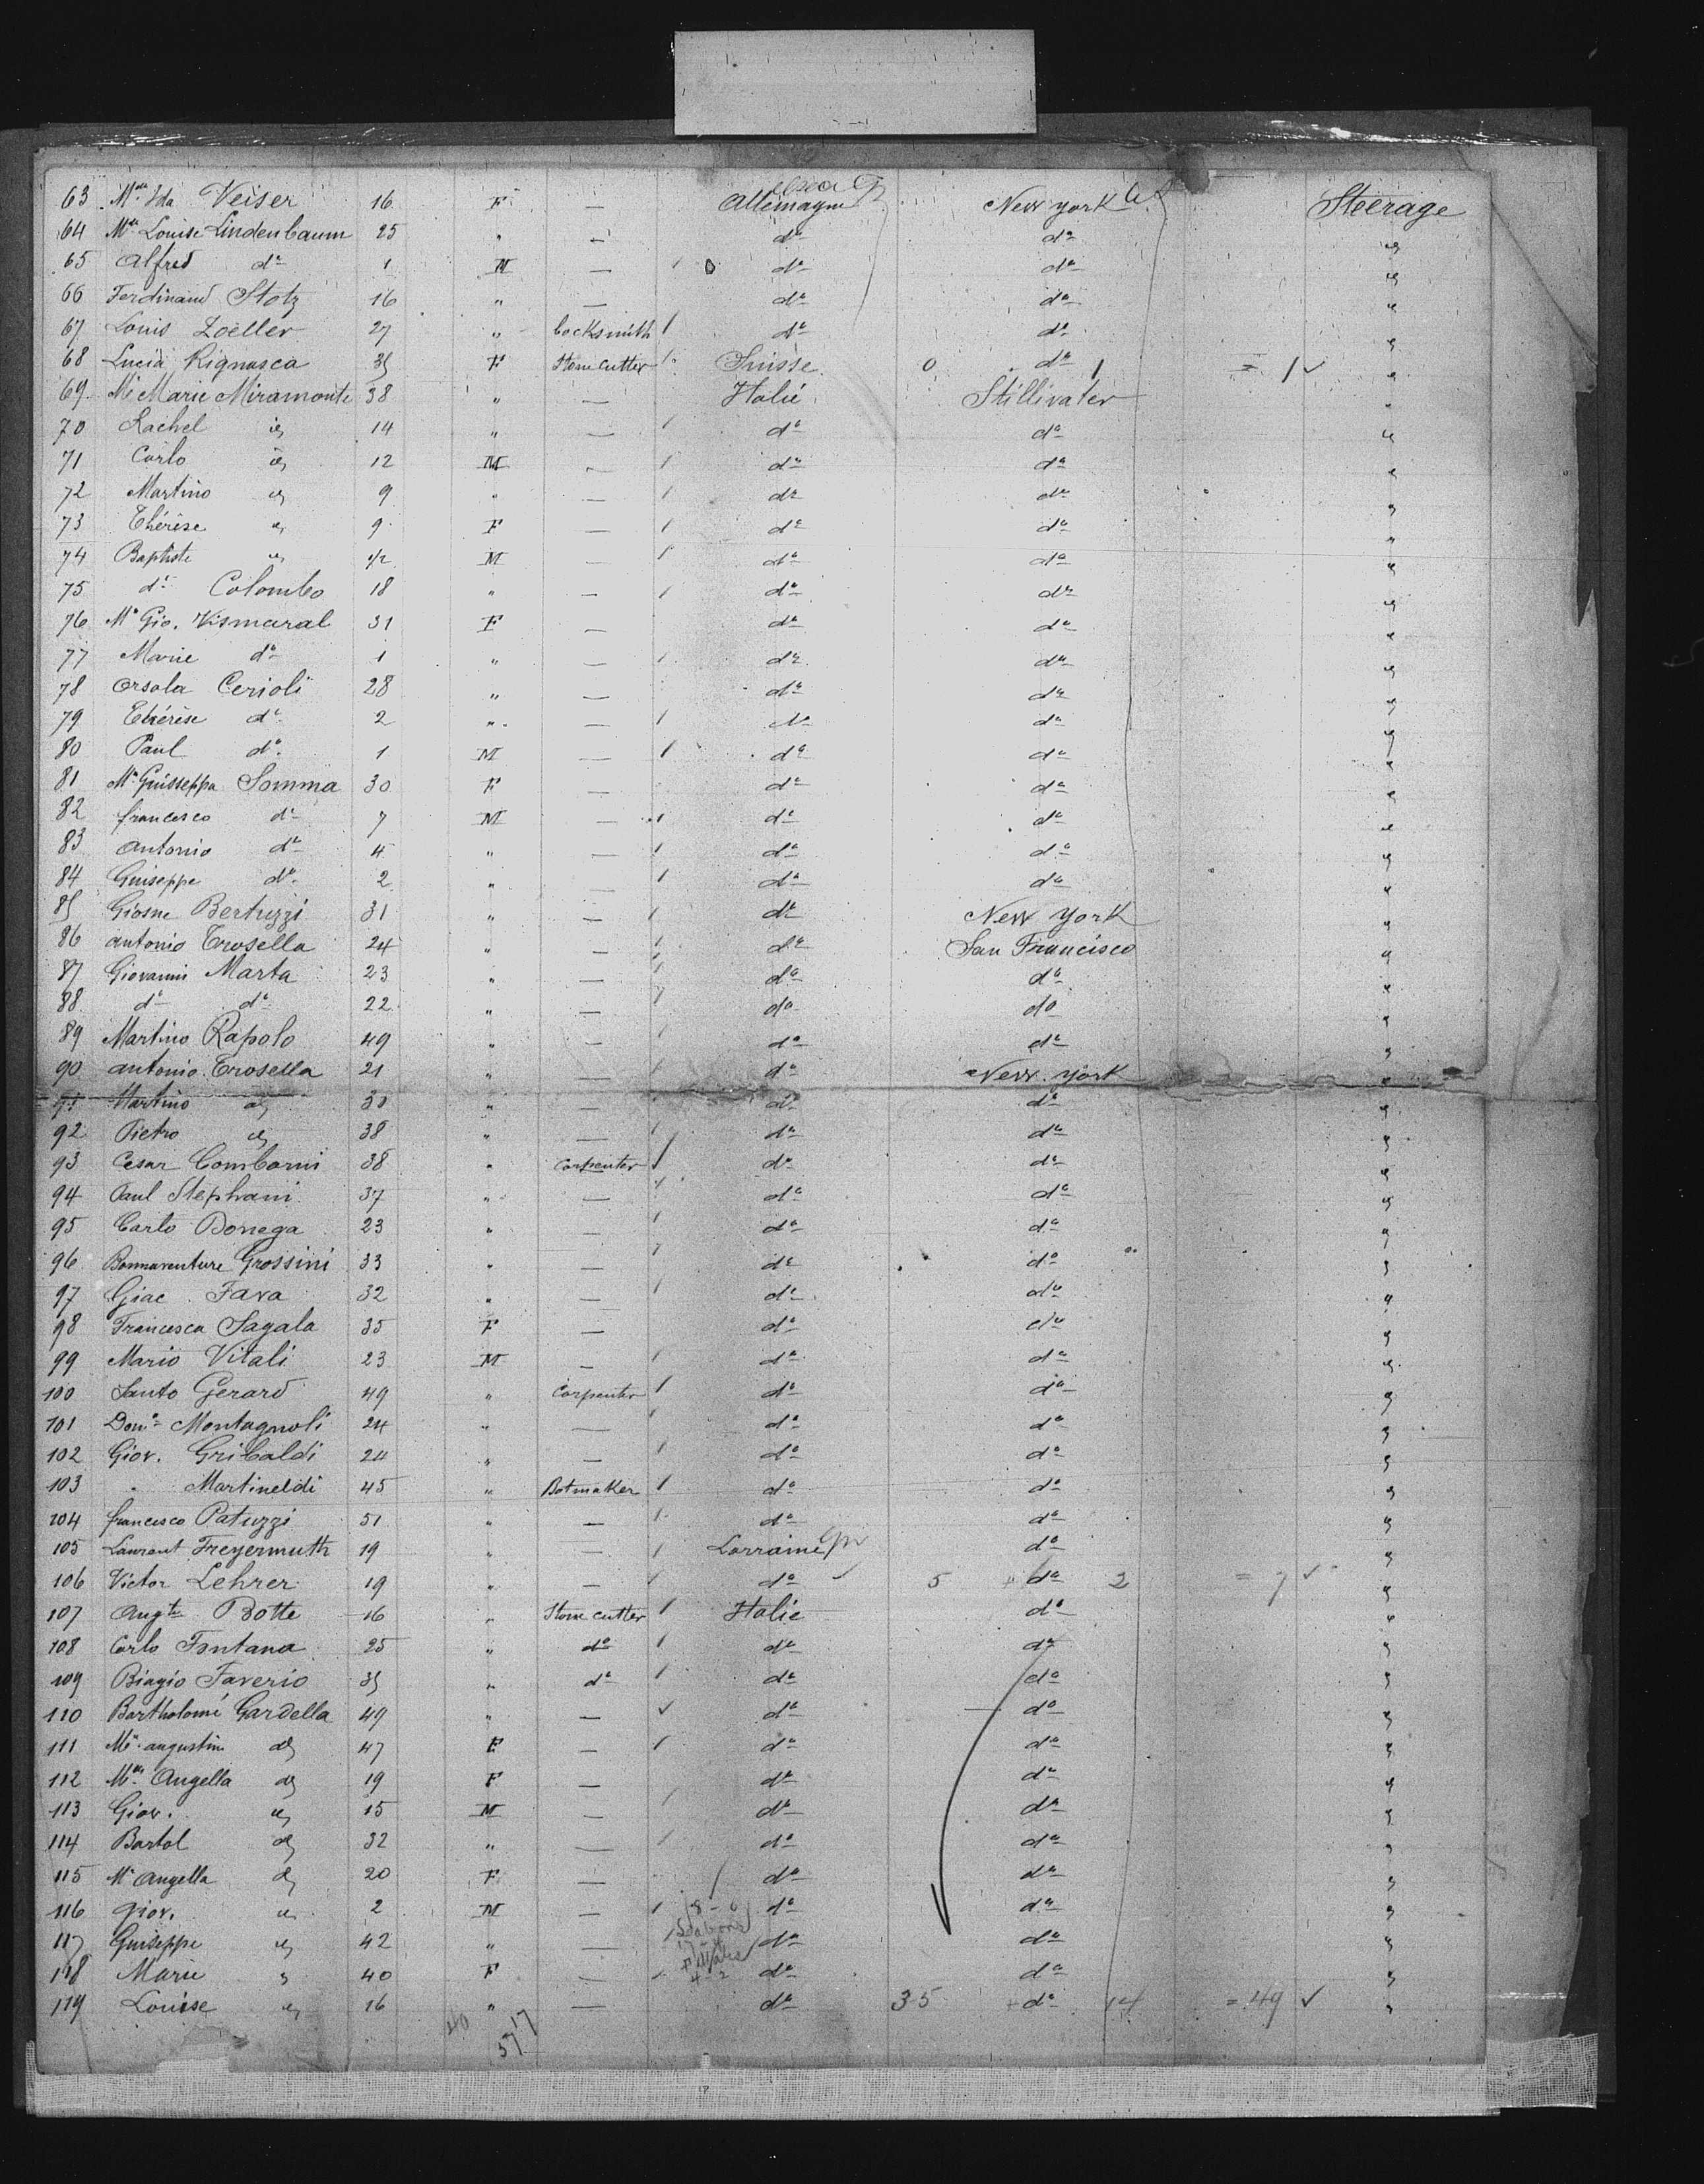 63 Mlle Ida Veiser 16 F — Allemagne New York Steerage
64 Mme Louise Lindenbaum 25 " — do do "
65 Alfred do 1 M — do do "
66 Ferdinand Stotz 16 " — do do "
67 Louis Zoëller 27 " Locksmith 1 do do "
68 Lucia Rignasca 35 F Stone cutter 1 Suisse 0 do 1 = 1 ✓ "
69 Me Marie Miramonte 38 " — Italie Stillwater "
70 Rachel id 14 " — 1 do do "
71 Carlo id 12 M — 1 do do "
72 Martino id 9 " — 1 do do "
73 Thérèse id 9 F — 1 do do "
74 Baptiste id 1/2 M — 1 do do "
75 do Colombo 18 " — 1 do do "
76 Me Gio. Vismaral 31 F — do do "
77 Marie do 1 " — 1 do do "
78 Orsola Cerioli 28 " — do do "
79 Thérèse do 2 " — 1 do do "
80 Paul do 1 M — 1 do do "
81 Me Guisseppa Somma 30 F — do do "
82 francesco do 7 M — 1 do do "
83 Antonio do 4 " — 1 do do "
84 Guiseppe do 2 " — 1 do do "
85 Giosue Bertuzzi 31 " — 1 do New York "
86 Antonio Trosella 24 " — 1 do San Francisco "
87 Giovanni Marta 23 " — 1 do do "
88 do do 22 " — 1 do do "
89 Martino Rapolo 49 " — 1 do do "
90 Antonio Trosella 21 " — 1 do New York "
91 Martino id 30 " — 1 do do "
92 Pietro id 38 " — 1 do do "
93 Cesar Comboni 38 " Carpenter 1 do do "
94 Paul Stephani 37 " — 1 do do "
95 Carlo Donega 23 " — 1 do do "
96 Bonnaventure Grossini 33 " — 1 do do "
97 Giac. Fava 32 " — 1 do do "
98 Francesca Sagala 35 F — do do "
99 Mario Vitali 23 M — 1 do do "
100 Santo Gerard 49 " Carpenter 1 do do "
101 Domo Montagnoli 24 " — 1 do do "
102 Giov. Gribaldi 24 " — 1 do do "
103 " Martineldi 45 " Botmaker 1 do do "
104 francesco Patuzzi 51 " — 1 do do "
105 Laurent Freyermuth 19 " — 1 Lorraine do "
106 Victor Lehrer 19 " — 1 do 5 + do 2 = 7 ✓ "
107 Augte Botte 16 " Stone cutter 1 Italie do "
108 Carlo Fontana 25 " do 1 do do "
109 Biagio Faverio 35 " do 1 do do "
110 Bartholomé Gardella 49 " — ✓ do do "
111 Me Augustin id 47 F — 1 do do "
112 Mlle Angella id 19 F — do do "
113 Giov. id 15 M — 1 do do "
114 Bartol id 32 " — 1 do do "
115 Me Angella id 20 F — do do "
116 Giov. id 2 M — 1 do do "
117 Guiseppe id 42 " — 1 do do "
118 Marie id 40 F — do do "
119 Louise id 16 " — do 35 + do 14 = 49 ✓ "
40 57 17